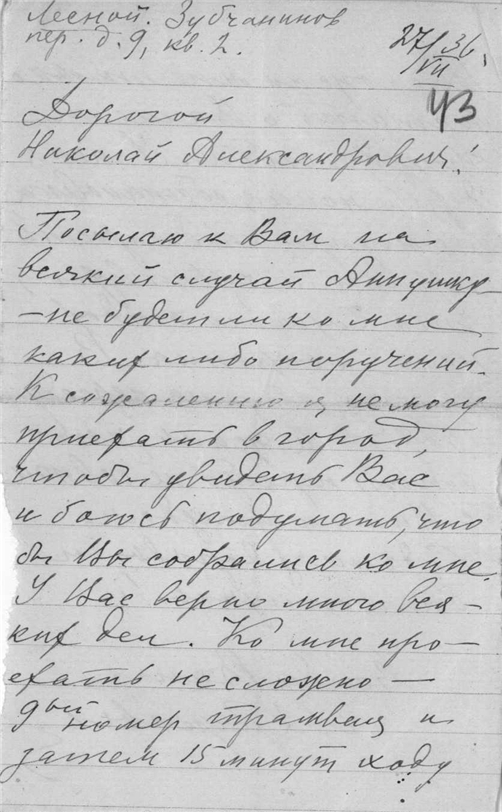 Лесной. Зубчанинов
пер. д. 9, кв. 2.
27/VII 36.
43
Дорогой
Николай Александрович!
Посылаю к Вам на
всякий случай Аннушку
– не будет ли ко мне
каких либо поручений.
К сожалению я не могу
приехать в город,
чтобы увидеть Вас
и боюсь подумать, что
бы Вы собрались ко мне.
У Вас верно много вся–
ких дел. Ко мне про–
ехать не сложно –
9ый номер трамвая и
затем 15 минут ходу